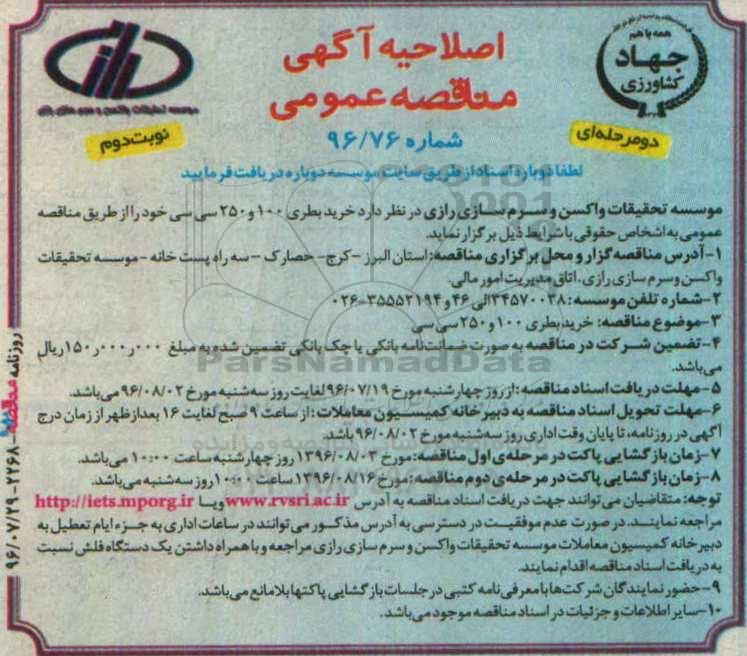 همه با هم
جهاد
کشاورزی
اصلاحیه آگهی
مناقصه عمومی
دو مرحله‌ای
نوبت دوم
شماره ۹۶/۷۶
لطفا دوباره اسناد از طریق سایت موسسه دوباره دریافت فرمایید
موسسه تحقیقات واکسن و سرم سازی رازی در نظر دارد خرید بطری ۱۰۰ و ۲۵۰ سی سی خود را از طریق مناقصه
عمومی به اشخاص حقوقی با شرایط ذیل برگزار نماید.
۱- آدرس مناقصه گزار و محل برگزاری مناقصه: استان البرز - کرج - حصارک - سه راه پست خانه - موسسه تحقیقات
واکسن و سرم سازی رازی. اتاق مدیریت امور مالی.
۲- شماره تلفن موسسه: ۳۴۵۷۰۰۳۸ الی ۴۶ و ۳۵۵۵۲۱۹۴-۰۲۶
۳- موضوع مناقصه: خرید بطری ۱۰۰ و ۲۵۰ سی سی
۴- تضمین شرکت در مناقصه به صورت ضمانت نامه بانکی یا چک بانکی تضمین شده به مبلغ ۱۵۰,۰۰۰,۰۰۰ ریال
می باشد.
۵- مهلت دریافت اسناد مناقصه: از روز چهارشنبه مورخ ۹۶/۰۷/۱۹ لغایت روز سه شنبه مورخ ۹۶/۰۸/۰۲ می باشد.
۶- مهلت تحویل اسناد مناقصه به دبیرخانه کمیسیون معاملات: از ساعت ۹ صبح لغایت ۱۶ بعدازظهر از زمان درج
آگهی در روزنامه، تا پایان وقت اداری روز سه شنبه مورخ ۹۶/۰۸/۰۲ باشد.
۷- زمان بازگشایی پاکت در مرحله‌ی اول مناقصه: مورخ ۱۳۹۶/۰۸/۰۳ روز چهارشنبه ساعت ۱۰:۰۰ می باشد.
۸- زمان بازگشایی پاکت در مرحله‌ی دوم مناقصه: مورخ ۱۳۹۶/۰۸/۱۶ ساعت ۱۰:۰۰ روز سه شنبه می باشد.
توجه: متقاضیان می توانند جهت دریافت اسناد مناقصه به آدرس www.rvsri.ac.ir و یا http://iets.mporg.ir
مراجعه نمایند. در صورت عدم موفقیت در دسترسی به آدرس مذکور می توانند در ساعات اداری به جزء ایام تعطیل به
دبیرخانه کمیسیون معاملات موسسه تحقیقات واکسن و سرم سازی رازی مراجعه و با همراه داشتن یک دستگاه فلش نسبت
به دریافت اسناد مناقصه اقدام نمایند.
۹- حضور نمایندگان شرکت ها با معرفی نامه کتبی در جلسات بازگشایی پاکتها بلامانع می باشد.
۱۰- سایر اطلاعات و جزئیات در اسناد مناقصه موجود می باشد.
روزنامه مناقصه - ۲۲۶۸ - ۹۶/۰۷/۲۹
ParsNamadData